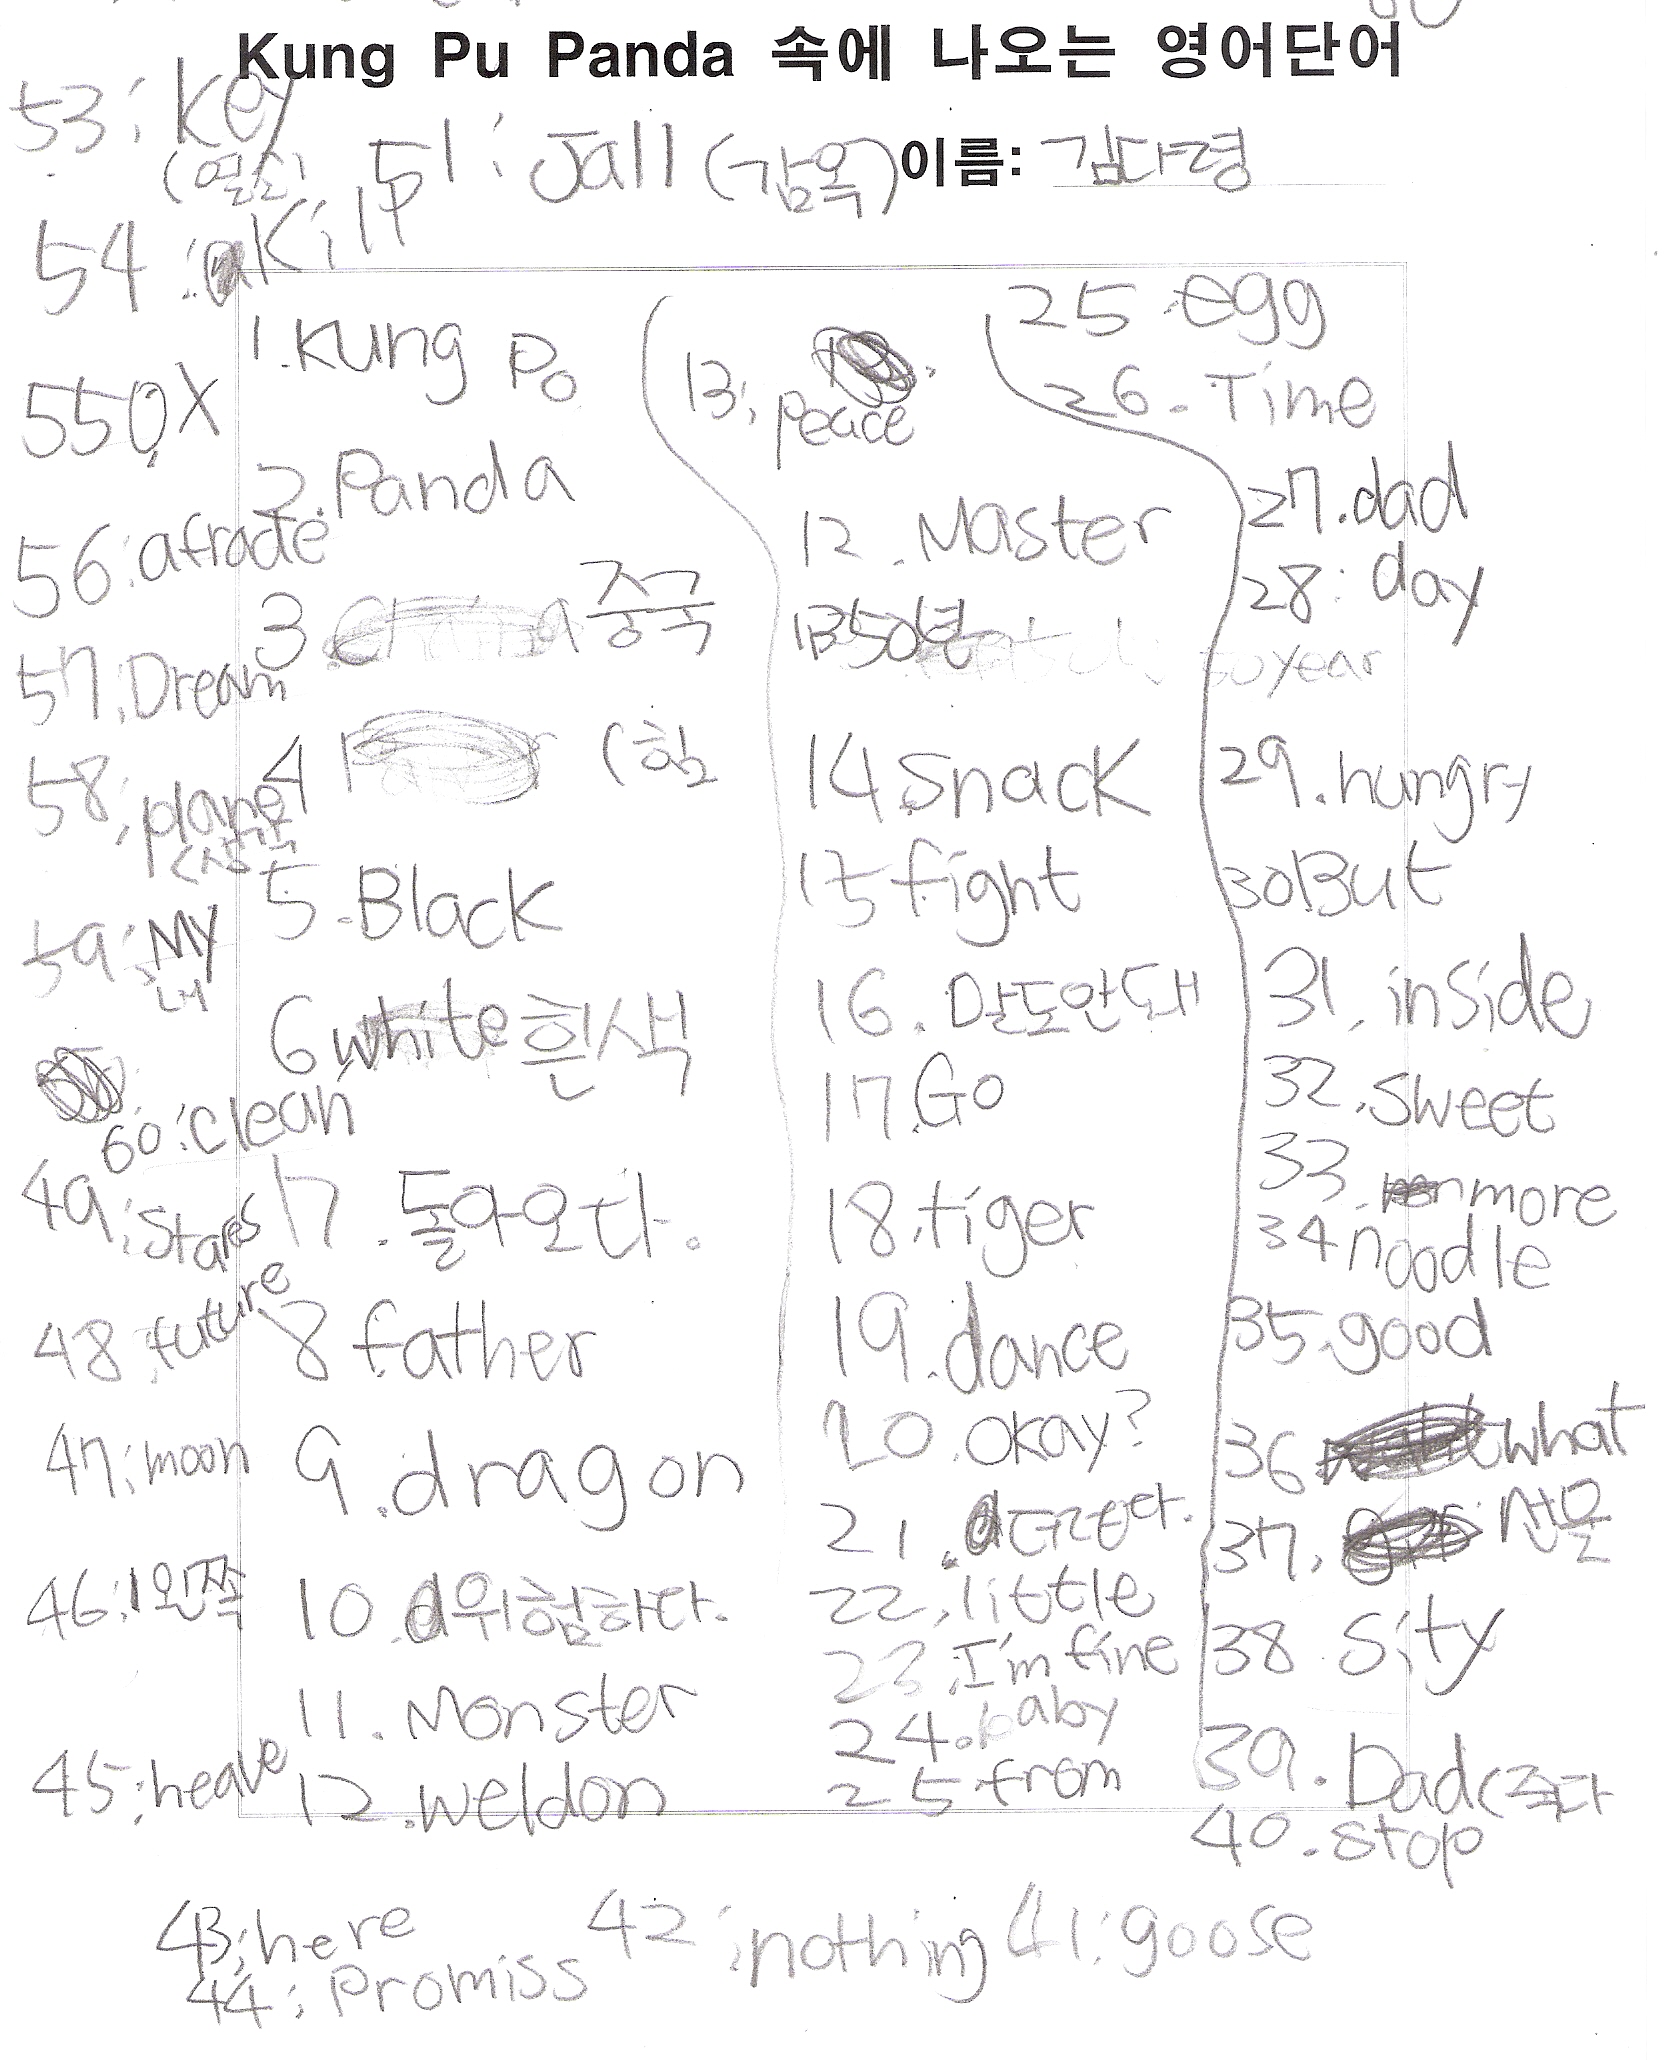 Kung Pu Panda 속에 나오는 영어단어
이름: 김다령
53; key
(열쇠)
51; Jall (감옥)
54; Kill
55 OX
56; afrade
57; Dream
58; plane
59; My
내
60; clean
49; Stares
48; future
47; moon
46; 왼쪽
45; heave
1. Kung Po
2. Panda
3 중국
4 (힘
5. Black
6 white 흰색
7. 돌아오다.
8 father
9. dragon
10. 위험하다.
11. Monster
12. weldon
13; peace
12. Master
13 50년
50 year
14 Snack
15 fight
16. 말도안돼
17. Go
18. tiger
19. dance
20. okay?
21. 더럽다.
22. little
23. I'm fine
24. baby
25. from
25. egg
26. Time
27. dad
28: day
29. hungry
30 But
31. inside
32. Sweet
33. more
34 noodle
35. good
36. what
37. 선물
38. Sity
39. Dad (죽다
40. stop
41; goose
42; nothing
43; here
44; Promiss